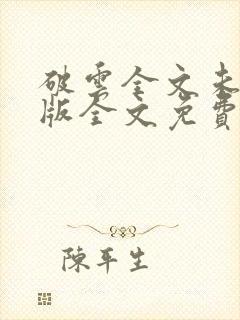 破雲全文未
版全文免費
陳平生